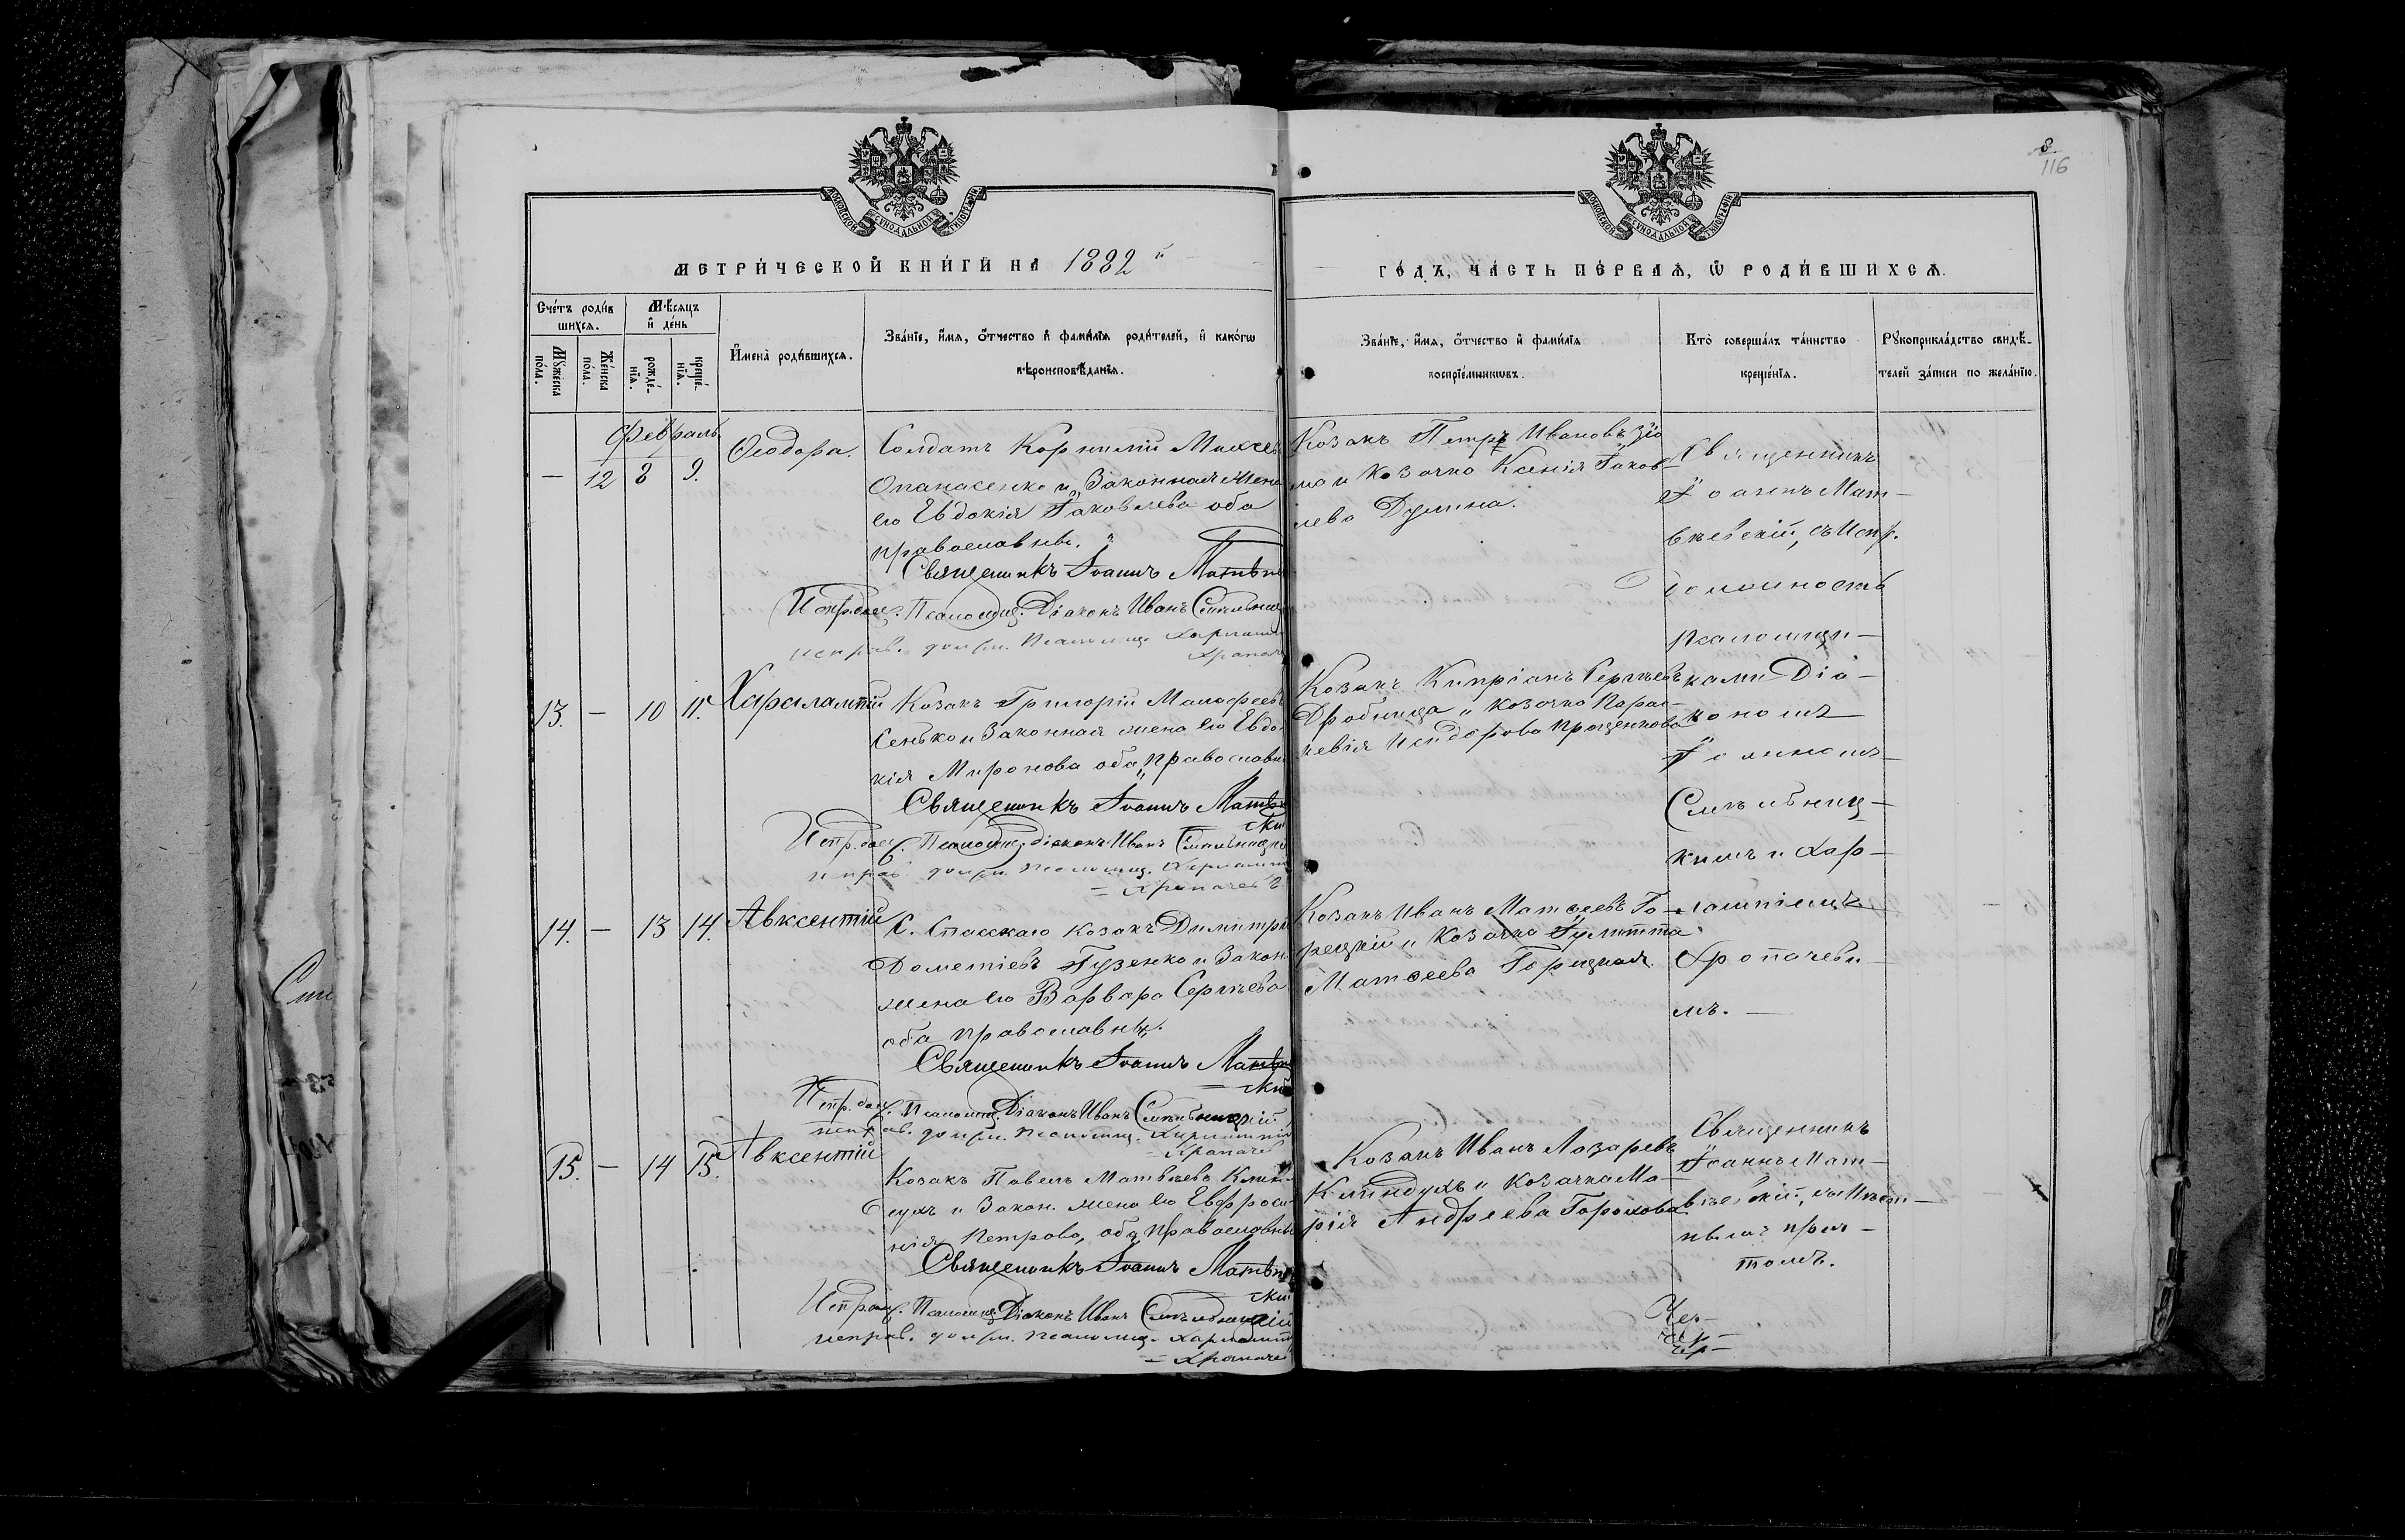 8.
116
МОСКОВСКОЙ СѴНОДАЛЬНОЙ ТИПОГРАФІИ
МОСКОВСКОЙ СѴНОДАЛЬНОЙ ТИПОГРАФІИ
МЕТРИ́ЧЕСКОЙ КНИ́ГИ НА 1882 й
ГО́ДЪ, ЧА́СТЬ ПЕ́РВАѦ, Ѡ РОДИ́ВШИХСѦ.
Сче́тъ роди́в
шихсѧ.
Мѹ́жеска по́ла.
Же́нска по́ла.
Мѣ́сѧцъ
и де́нь
рожде́-
нїѧ.
креще́-
нїѧ.
Имена̀ роди́вшихсѧ.
Зва́нїе, и́мѧ, о́тчество и фами́лїѧ роди́телей, и како́гѡ
вѣроисповѣ́данїѧ.
Зва́нїе, и́мѧ, о́тчество и фами́лїѧ
воспрїе́мникѡвъ.
Кто̀ соверша́лъ та́инство
креще́нїѧ.
Рѹкоприкла́дство свидѣ́-
телей за́писи по жела́нїю.
Февраль
— 12 8 9.
Ѳеодора.
Солдатъ Корнилій Моисеев
Опанасенко и Законная жена
его Евдокія Іаковлева оба
православные.
Священникъ Іоаннъ Матвѣев
Испр. дол. Псаломщ. Діаконъ Иванъ Смѣльниц
исправ. должн. Псаломщ. Харламп
Храпаче
Козакъ Петръ Ивановъ
и козачка Ксенія Іаков-
лева Думина.
Священникъ
Іоаннъ Мат-
вѣевскій, съ Испр.
должность
псаломщи-
ками Діа-
кономъ
Іоанномъ
Смѣльниц-
кимъ и Хар-
лампіемъ
Хропачевы-
мъ. —
13. — 10 11.
Харалампій
Козакъ Григорій Малофеев
Сенько и Законная жена его Евдо-
кія Миронова оба православн
Священникъ Іоаннъ Матвѣев
скій
Испр. дол. Псаломщ. діаконъ Иванъ Смѣльницкій
исправ. должн. Псаломщ. Харламп
= Храпачевъ
Козакъ Кипріанъ Сергѣевъ
Дробница и козачка Парас-
кевія Исидорова Проценкова
14. — 13 14.
Авксентій
С. Спасскаго козакъ Димитрій
Дометіевъ Гузенко и Закон.
жена его Варвара Сергѣева
оба православные.
Священникъ Іоаннъ Матвѣев
= скій
Испр. дол. Псаломщ. Діаконъ Иванъ Смѣльницкій
исправ. должн. Псаломщ. Харлампій
= Храпаче
Козакъ Иванъ Матѳеевъ Го-
рецкій и козачка Іулитта
Матѳеева Горецкая.
15. — 14 15.
Авксентій
Козакъ Павелъ Матвѣевъ Клин-
духъ и Закон. жена его Евфроси-
нія Петрова, оба Православные
Священникъ Іоаннъ Матвѣев
скій
Испр. дол. Псаломщ. Діаконъ Иванъ Смѣльницкій
исправ. должн. Псаломщ. Харлампій
= Храпаче
Козакъ Иванъ Лазаревъ
Клиндухъ и козачка Ма-
рія Андреева Горохова
Священникъ
Іоаннъ Мат-
вѣевскій, съ Мѣст-
нымъ прич-
томъ.